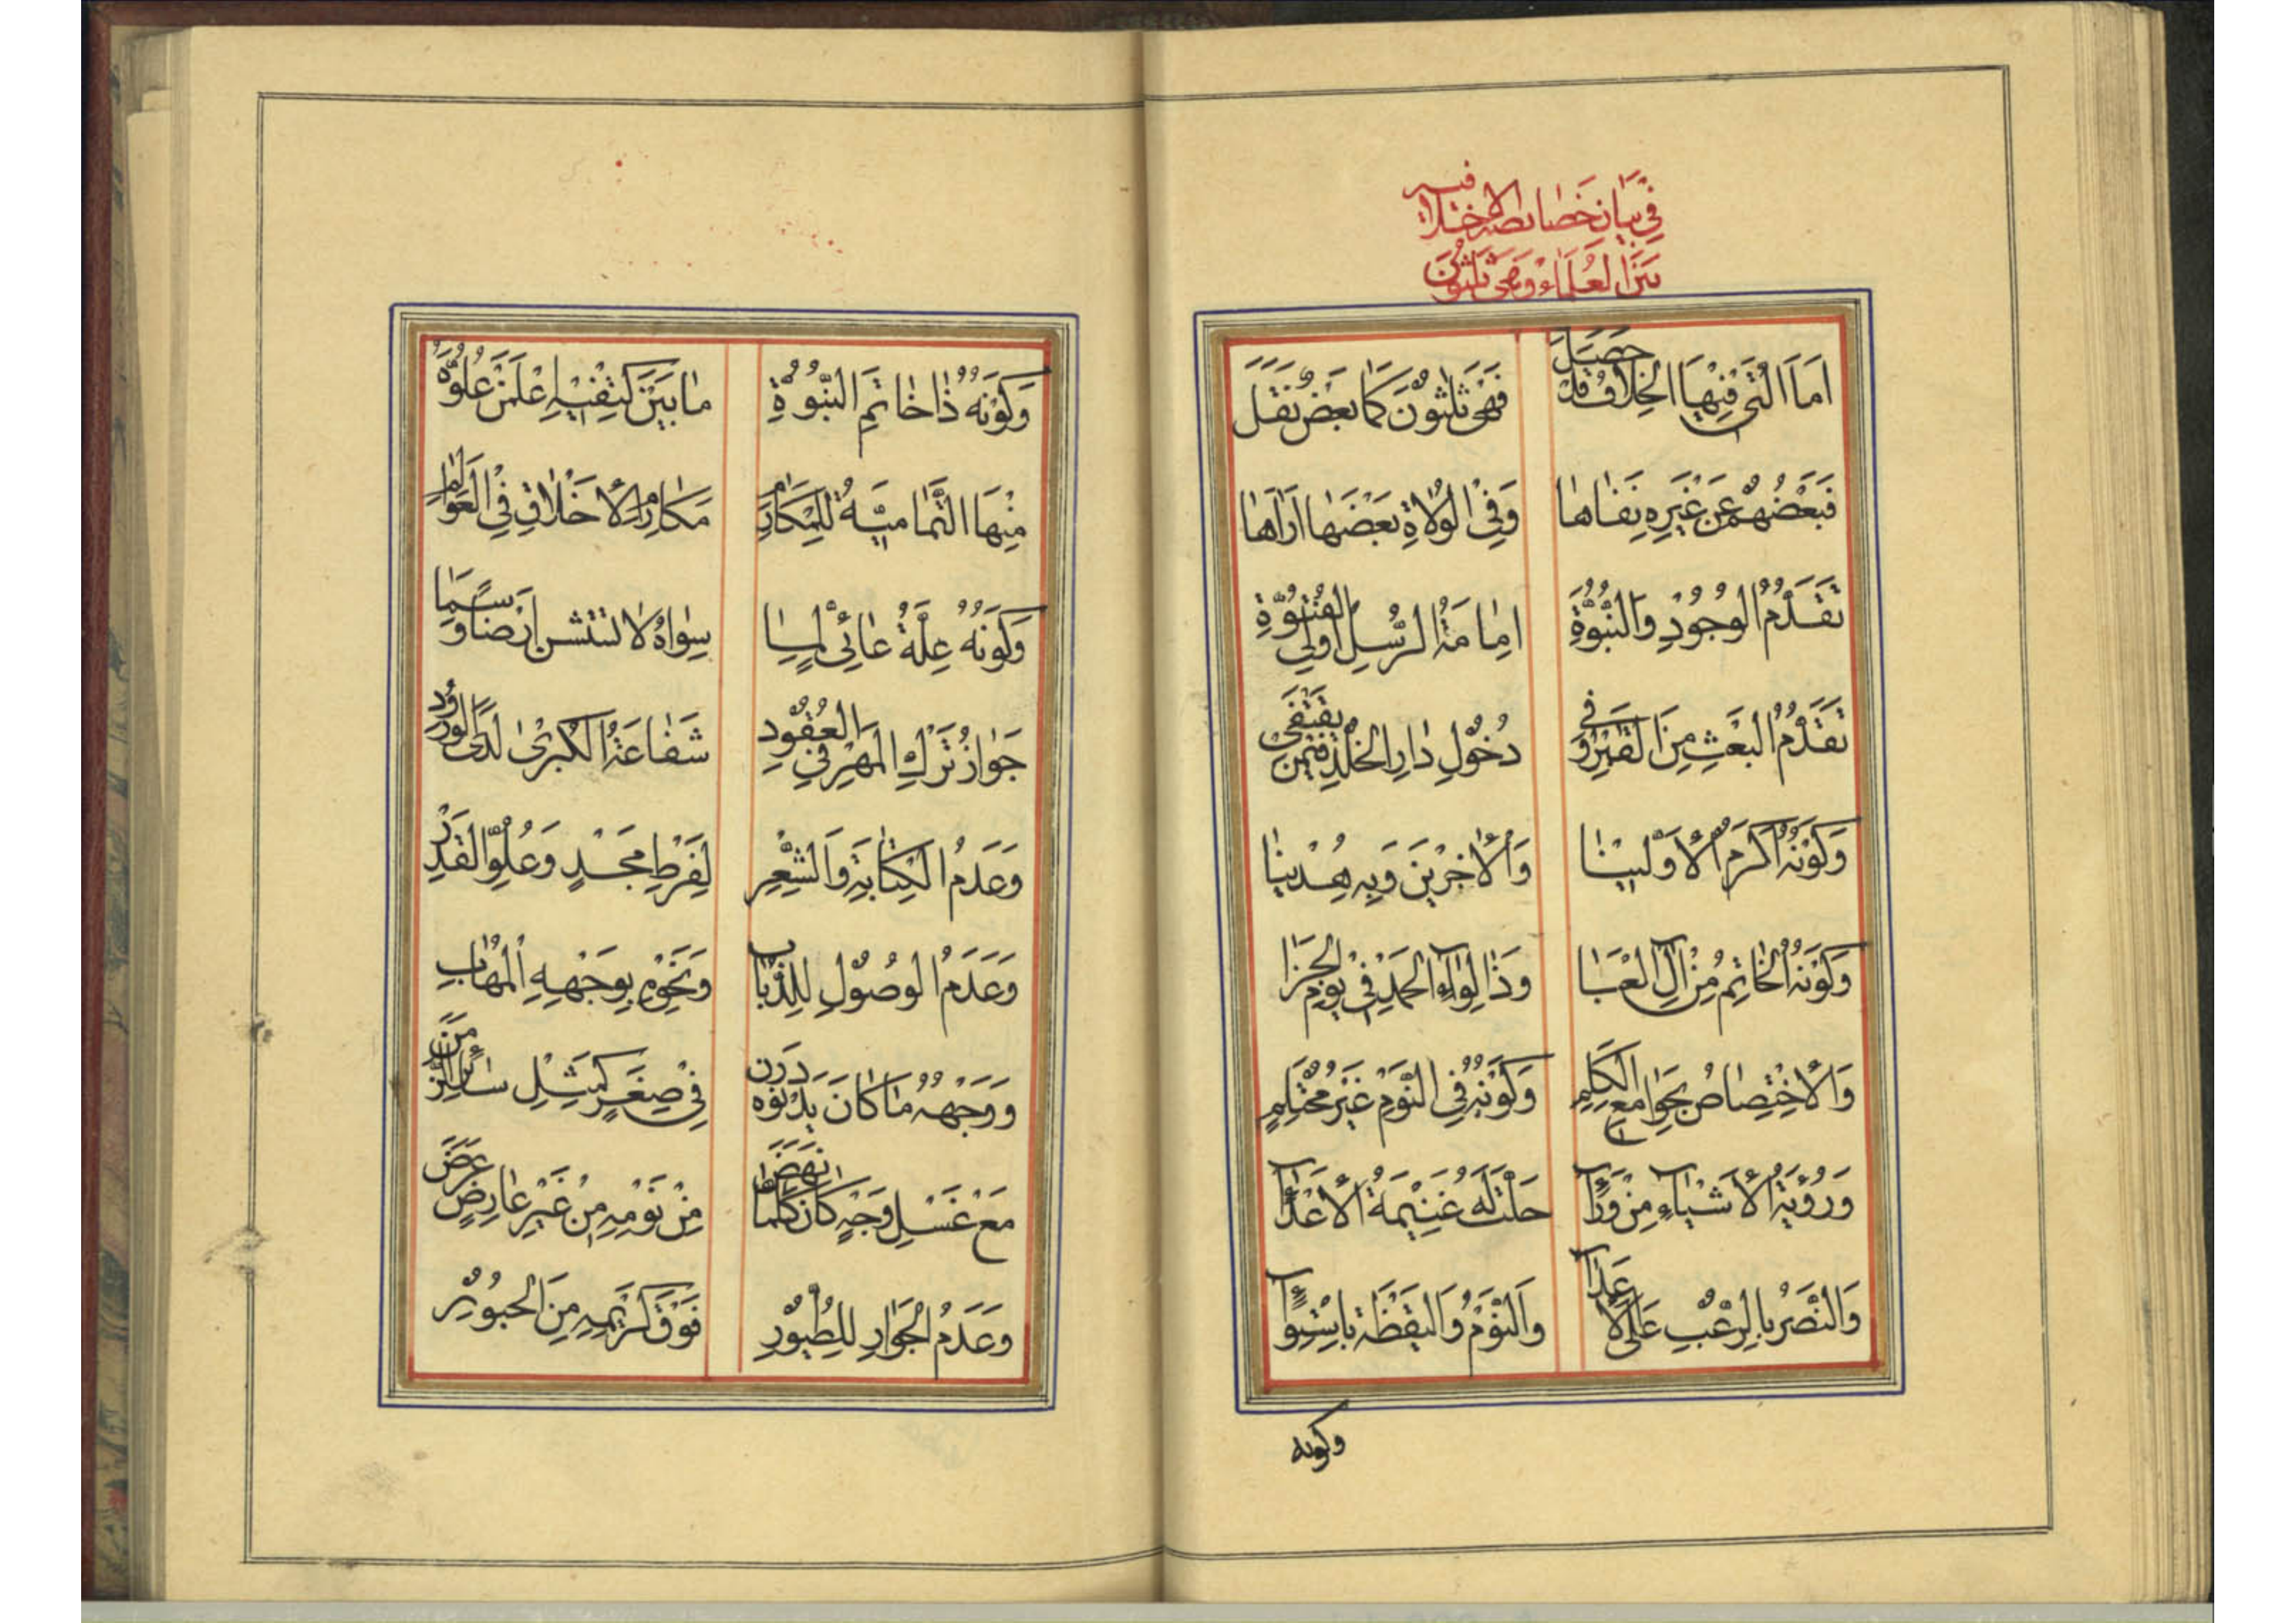 في بيان خصائصه الاختلاف فيه
بين العلماء وهي ثلثون
اَمَا الَّتي فيهَا الخِلافُ قَدْ حَصَلَ
فَهْيَ ثَلٰثُونَ كَمٰا بَعْضٌ نَقَلَ
فَبَعْضُهُمْ عَنْ غَيْرِهِ نَفٰاهٰا
وَفِي الْوُلاةِ بَعْضُهٰا اَرٰاهٰا
تَقَدُّمُ الْوُجُودِ وَالنُّبُوَّةِ
اِمٰامَةُ الرُّسْلِ اُولِي الْفُتُوَّةِ
تَقَدُّمُ الْبَعْثِ مِنَ الْقَبْرِ وَفي
دُخُولِ دٰارِ الْخُلْدِ فيمَنْ يَقْتَفي
وَكَوْنُهُ اَكْرَمَ الْاَوَّلينٰا
وَالْاٰخِرينَ وَبِهِ هُدينٰا
وَكَوْنُهُ الْخٰاتِمُ مِنْ اٰلِ الْعَبٰا
وَذٰا لِوٰاءِ الْحَمْدِ في يَوْمِ الْجَزٰا
وَالْاِخْتِصٰاصُ بِجَوٰامِعِ الْكَلِمِ
وَكَوْنُهُ فِي النَّوْمِ غَيْرَ مُحْتَلِمٍ
وَرُؤْيَةُ الْاَشْيٰاءِ مِنْ وَرٰآ
حَلَّتْ لَهُ غَنيمَةُ الْاَعْدٰآ
وَالنَّصْرُ بِالرُّعْبِ عَلَى الْاَعْدٰآ
وَالنَّوْمُ وَالْيَقْظَةُ بِاسْتِوٰآءٍ
وكونه
وَكَوْنُهُ ذٰا خٰاتَمِ النُّبُوَّةِ
مٰا بَيْنَ كَتِفَيْهِ اعْلَمَنْ عُلُوَّهُ
مِنْهَا التَّمٰامِيَّةُ لِلْمَكٰارِمِ
مَكٰارِمِ الْاَخْلٰاقِ فِي الْعَوٰالِمِ
وَكَوْنُهُ عِلَّةُ غٰائِيٍّ لِمٰا
سِوٰاهُ لا اَرْضًا وَسَمٰا
جَوٰازُ تَرْكِ الْمَهْرِ فِي الْعُقُودِ
شَفٰاعَةُ الْكُبْرىٰ لَدَى الْوُرُودِ
وَعَدَمُ الْكِتٰابَةِ وَالشِّعْرِ
لِفَرْطِ مَجْدٍ وَعُلُوِّ الْقَدْرِ
وَعَدَمُ الْوُصُولِ لِلذُّبٰابِ
وَنَحْوِهِ بِوَجْهِهِ الْمُهٰابِ
وَوَجْهُهُ مٰا كٰانَ يَدْنُوهُ دَرَن
في صِغَرٍ كَمِثْلِ سٰائِرِ الزَّمَنِ
مَعْ غَسْلِ وَجْهٍ كٰانَ كُلَّمٰا نَهَضَ
مِنْ نَوْمِهِ مِنْ غَيْرِ عٰارِضٍ عَرَضَ
وَعَدَمُ الْجَوٰازِ لِلطُّيُورِ
فَوْقَ كَريمِهِ مِنَ الْحُبُورِ